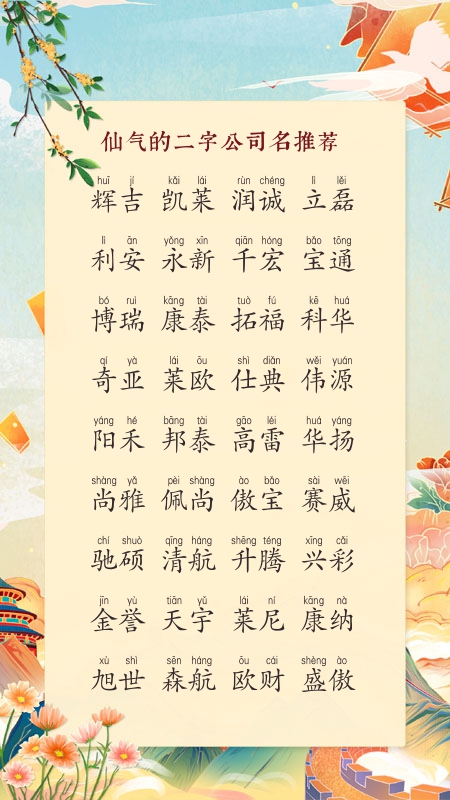 仙气的二字公司名推荐
huī jí kǎi lái rùn chéng lì lěi
辉吉 凯莱 润诚 立磊
lì ān yǒng xīn qiān hóng bǎo tōng
利安 永新 千宏 宝通
bó ruì kāng tài tuò fú kē huá
博瑞 康泰 拓福 科华
qí yà lái ōu shì diǎn wěi yuán
奇亚 莱欧 仕典 伟源
yáng hé bāng tài gāo léi huá yáng
阳禾 邦泰 高雷 华扬
shàng yǎ pèi shàng ào bǎo sài wēi
尚雅 佩尚 傲宝 赛威
chí shuò qīng háng shēng téng xīng cǎi
驰硕 清航 升腾 兴彩
jīn yù tiān yǔ lái ní kāng nà
金誉 天宇 莱尼 康纳
xù shì sēn háng ōu cái shèng ào
旭世 森航 欧财 盛傲